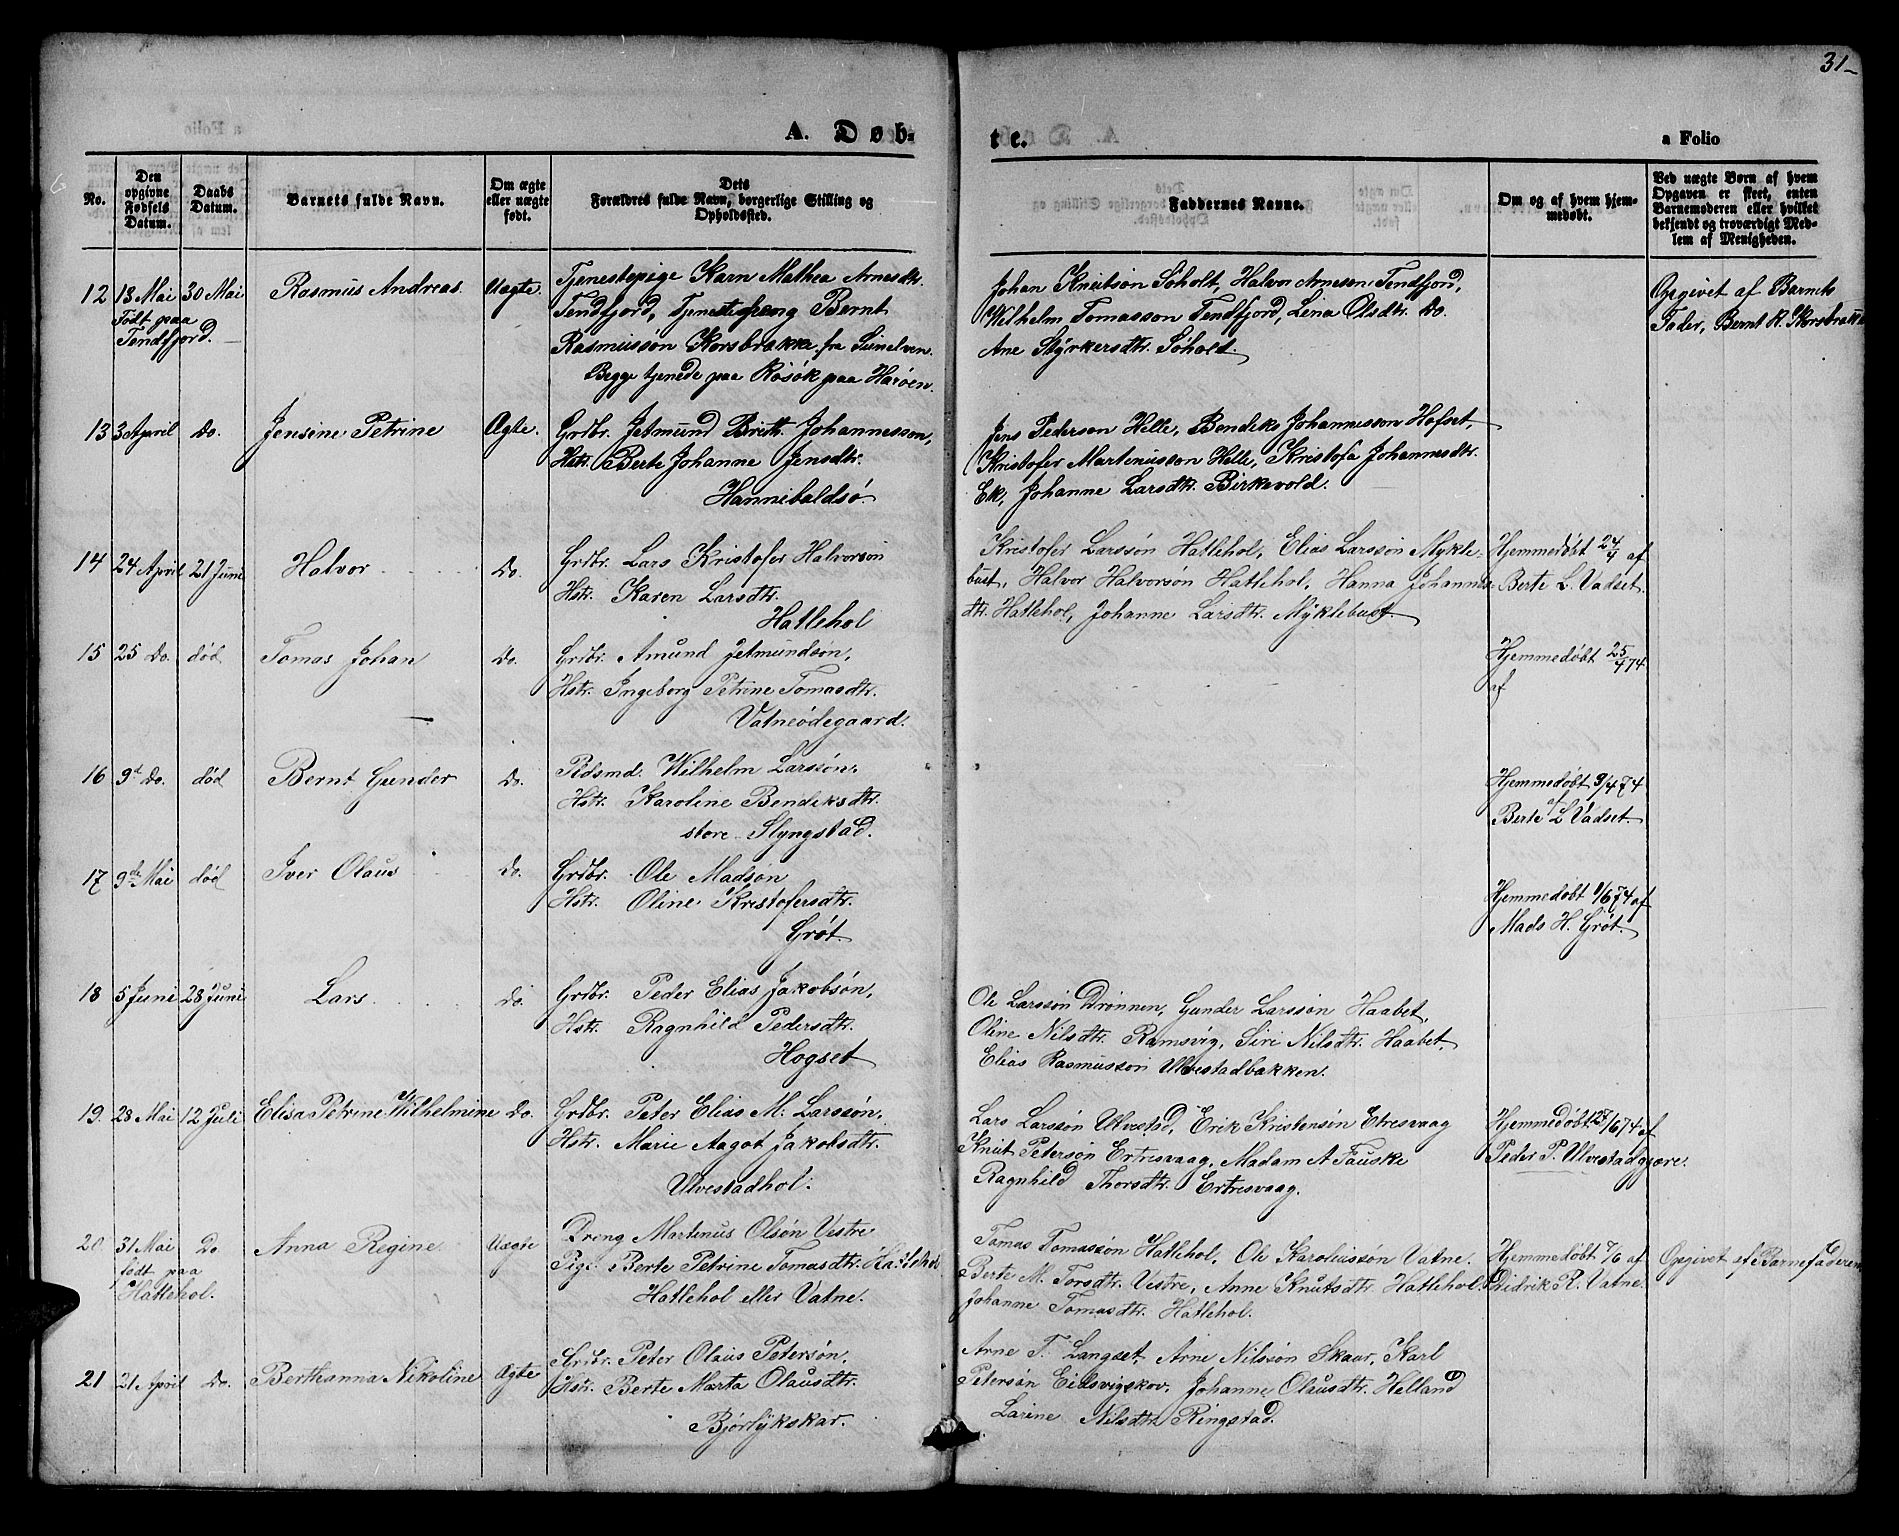 31
A. Døb-
te.
a Folio
No.
Den opgivne Fødsels Datum.
Daabs Datum.
Barnets fulde Navn.
Om ægte eller uægte født.
Dets Forældres fulde Navn, borgerlige Stilling og Opholdssted.
Faddernes Navne.
Om og af hvem hjemmedøbt.
Ved uægte Børn af hvem Opgaven er skeet, enten Barnemoderen eller hvilket bekjendt og troværdigt Medlem af Menigheden.
12 13 Mai 30 Mai Rasmus Andreas Uægte. Tjenestepige Karn Mathea Arnesdtr.
Født paa Tendfjord, Tjenestedreng Bernt
Tendfjord. Rasmussøn Korsbrække fra Sunelven.
Begge tjenede paa Røsøk paa Harøen.
Johan Knutson Søholt, Halvor Arneson Tendfjord,
Wilhelm Tomasson Tendfjord, Lena Olsdtr. Do.
Ane Styrkersdtr. Søhold.
Opgivet af Barnets
Fader, Bernt R. Korsbrække
13 3 April Do. Jensine Petrine Ægte. Grdbr. Jetmund Britt. Johannesson,
Hstr. Berte Johanne Jensdtr.
Hannibaldsø.
Jens Pederson Helle, Bendiks Johannesson Hofset,
Kristofer Martinusson Helle, Kristofa Johannesdtr.
Ek, Johanne Larsdtr. Birkevold.
14 24 April 21 Juni Halvor Do. Grdbr. Lars Kristofer Halvorsøn
Hstr. Karen Larsdtr.
Hatlehol
Kristofer Larssøn Hatlehol, Elias Larsson Mykle-
bust, Halvor Halvorsøn Hatlehol, Hanna Johannes-
dtr. Hatlehol, Johanne Larsdtr. Myklebust.
Hjemmedøbt 24/4 af
Berte L. Vadset.
15 25 Do. død Tomas Johan Do. Grdbr. Amund Jetmundsøn,
Hstr. Ingeborg Petrine Tomasdtr.
Vatneødegaard.
Hjemmedøbt 25/4 74
af
16 9d Do. død Bernt Gunder Do. Pldsmd. Wilhelm Larssøn.
Hstr. Karoline Bendiksdtr.
store Slyngstad.
Hjemmedøbt 9/4 74
af
Berte L Vadset.
17 9de Mai død Iver Olaus Do. Grdbr. Ole Madsøn
Hstr. Oline Kristofersdtr.
Grøt.
Hjemmedøbt 1/6 74 af
Mads H. Grøt.
18 5 Juni 28 Juni Lars Do. Grdbr. Peder Elias Jakobsøn,
Hstr. Ragnhild Pedersdtr.
Hogset
Ole Larssøn Drønnen, Gunder Larssøn Haabet,
Oline Nilsdtr. Ramsvig, Siri Nilsdtr. Haabet,
Elias Rasmusson Ulvestadbakken.
19. 28 Mai 12 Juli Elisa Petrine Wilhelmine Do. Grdbr. Peter Elias M. Larssøn.
Hstr. Marie Aagot Jakobsdtr.
Ulvestadhol.
Lars Larssøn Ulvestad, Erik Kristensøn Etresvaag
Knut Petersøn Ertresvaag, Madam A Fauske
Ragnhild Thorsdtr. Ertresvaag.
Hjemmedøbt 27/6 74 af
Peder P. Ulvestadgjære.
20 31 Mai Do Anna Regine Uægte Dreng Martinus Olsøn Vestre
født paa Pige Berte Petrine Tomasdtr. Hatlehol
Hatlehol. Hatlehol eller Vatne.
Tomas Tomassøn Hatlehol, Ole Karolusson Vatne.
Berte M. Torsdtr. Vestre, Anne Knutsdtr. Hatlehol.
Johanne Tomasdtr. Hatlehol.
Hjemmedøbt 7/6 af
Didrik R. Vatne.
Opgivet af Barnefaderen
21 21 April Do. Berthanna Nikoline Ægte Grdbr. Peter Olaus Petersøn.
Hstr. Berte Marta Olausdtr.
Bjørlykskar.
Arne T. Langset, Arne Nilssøn Skaar, Karl
Petersøn Eidsvigskov, Johanne Olausdtr. Helland
Larine Nilsdtr. Ringstad.